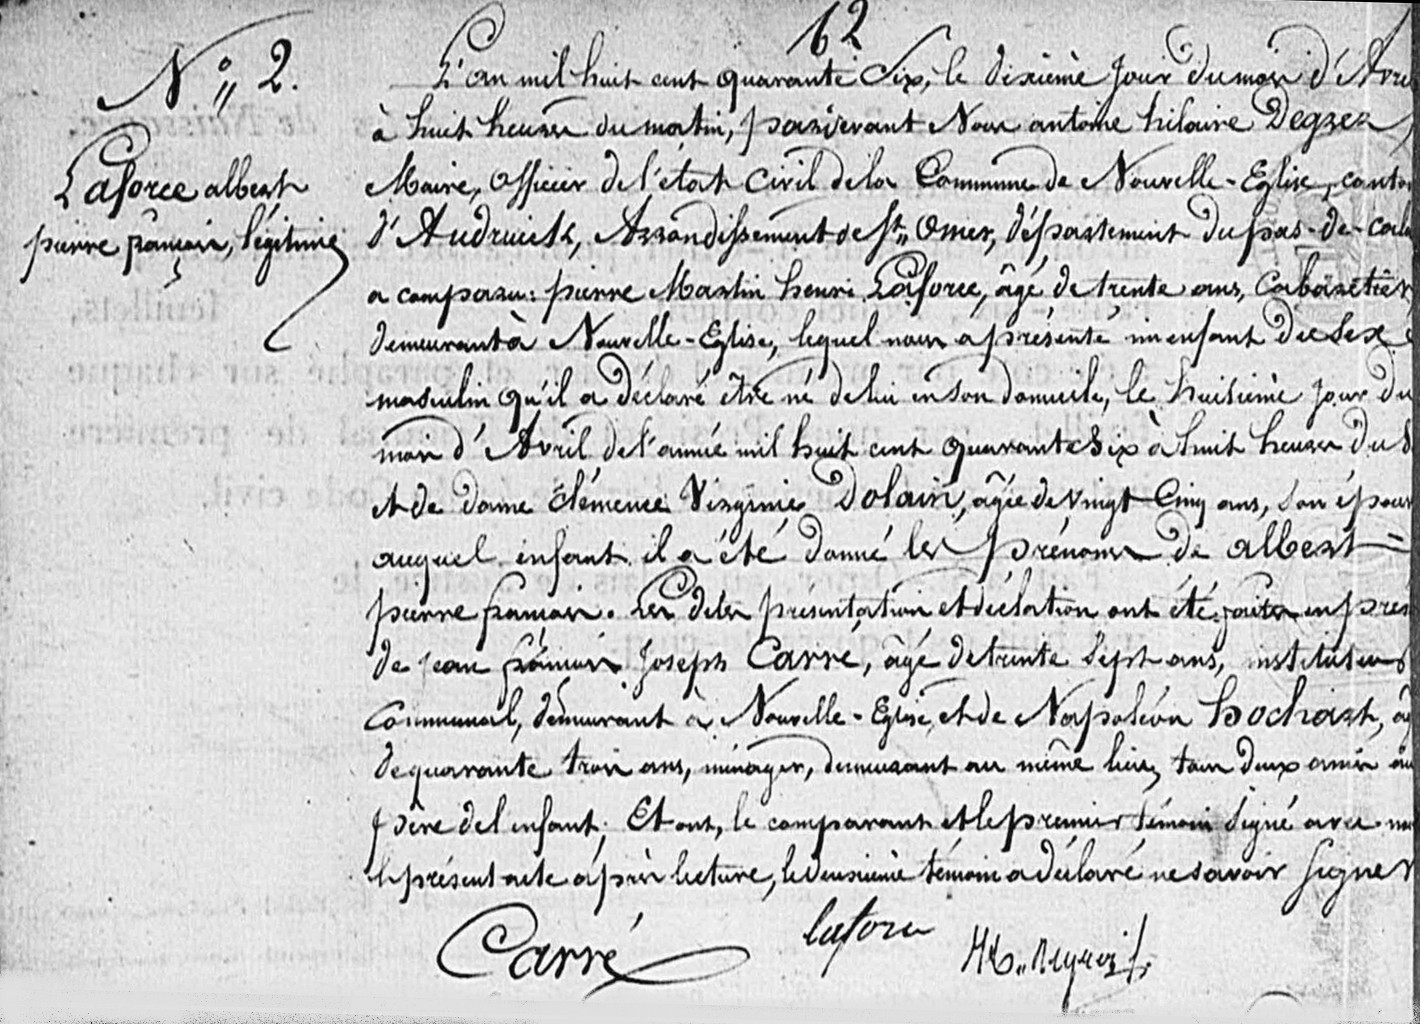 62
N° 2.
Laforce albert
pierre françois, légitime
L'an mil huit cent quarante Six, le dixième jour du mois d'Avril
à huit heures du matin, pardevant Nous antoine hilaire Degrez
Maire, officier de l'état civil de la Commune de Nouvelle-Eglise, canton
d'Audruick, Arrondissement de St. Omer, département du pas-de-cala
a comparu: pierre Martin henri Laforce, âgé de trente ans, Cabaretier
demeurant à Nouvelle-Eglise, lequel nous a présenté un enfant du Sexe
masculin qu'il a déclaré être né de lui en son domicile, le huitième jour du
mois d'Avril de l'année mil huit cent quarante Six à huit heures du
et de dame Clémence Virginie Dolain, âgée de vingt Cinq ans, son épouse
auquel enfant il a été donné les prénoms de albert =
pierre françois. Les dites présentation et déclation ont été faites en pres
de jean françois Joseph Carré, âgé de trente Sept ans, instituteur
Communal, demeurant à Nouvelle-Eglise, et de Napoléon hochart, âg
de quarante trois ans, ménager, demeurant au même lieu, tous deux amis au
père de l'enfant; Et ont, le comparant et le premier témoin Signé avec nous
le présent acte après lecture, le deuxième témoin a déclaré ne savoir signer
Carré laforce